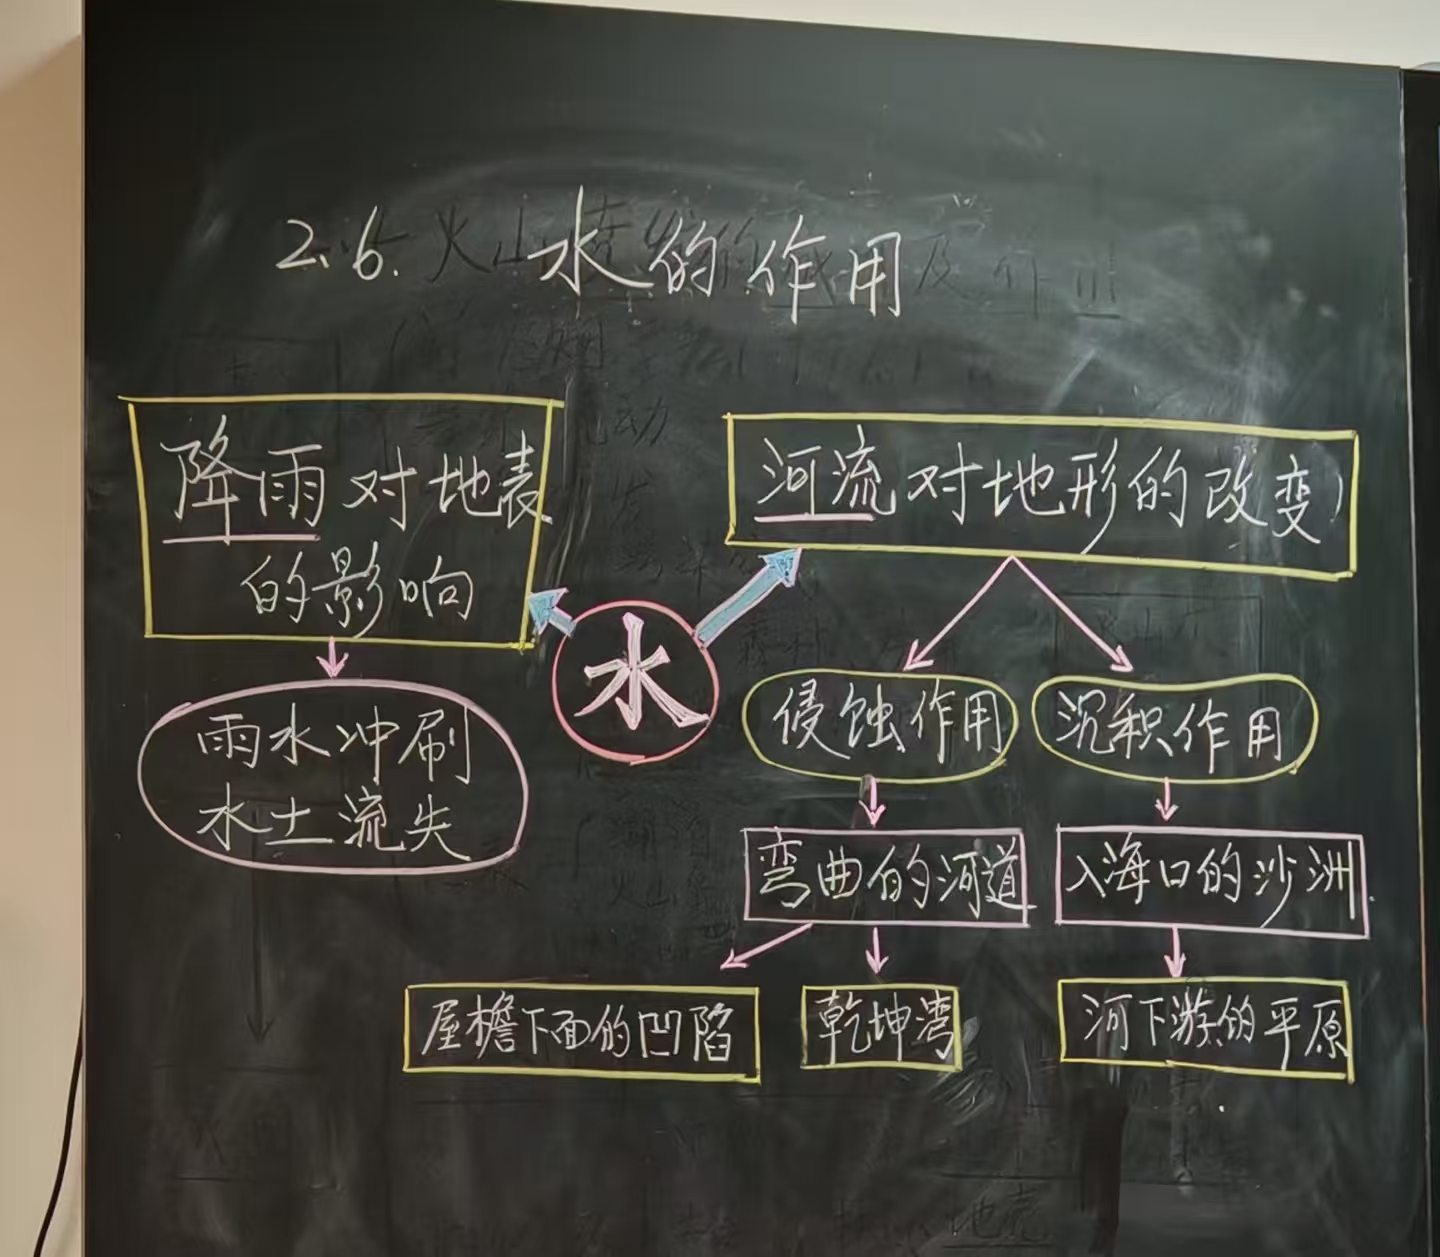 2.6. 水的作用
降雨对地表
的影响
河流对地形的改变
水
雨水冲刷
水土流失
侵蚀作用
沉积作用
弯曲的河道
入海口的沙洲
屋檐下面的凹陷
乾坤湾
河下游的平原